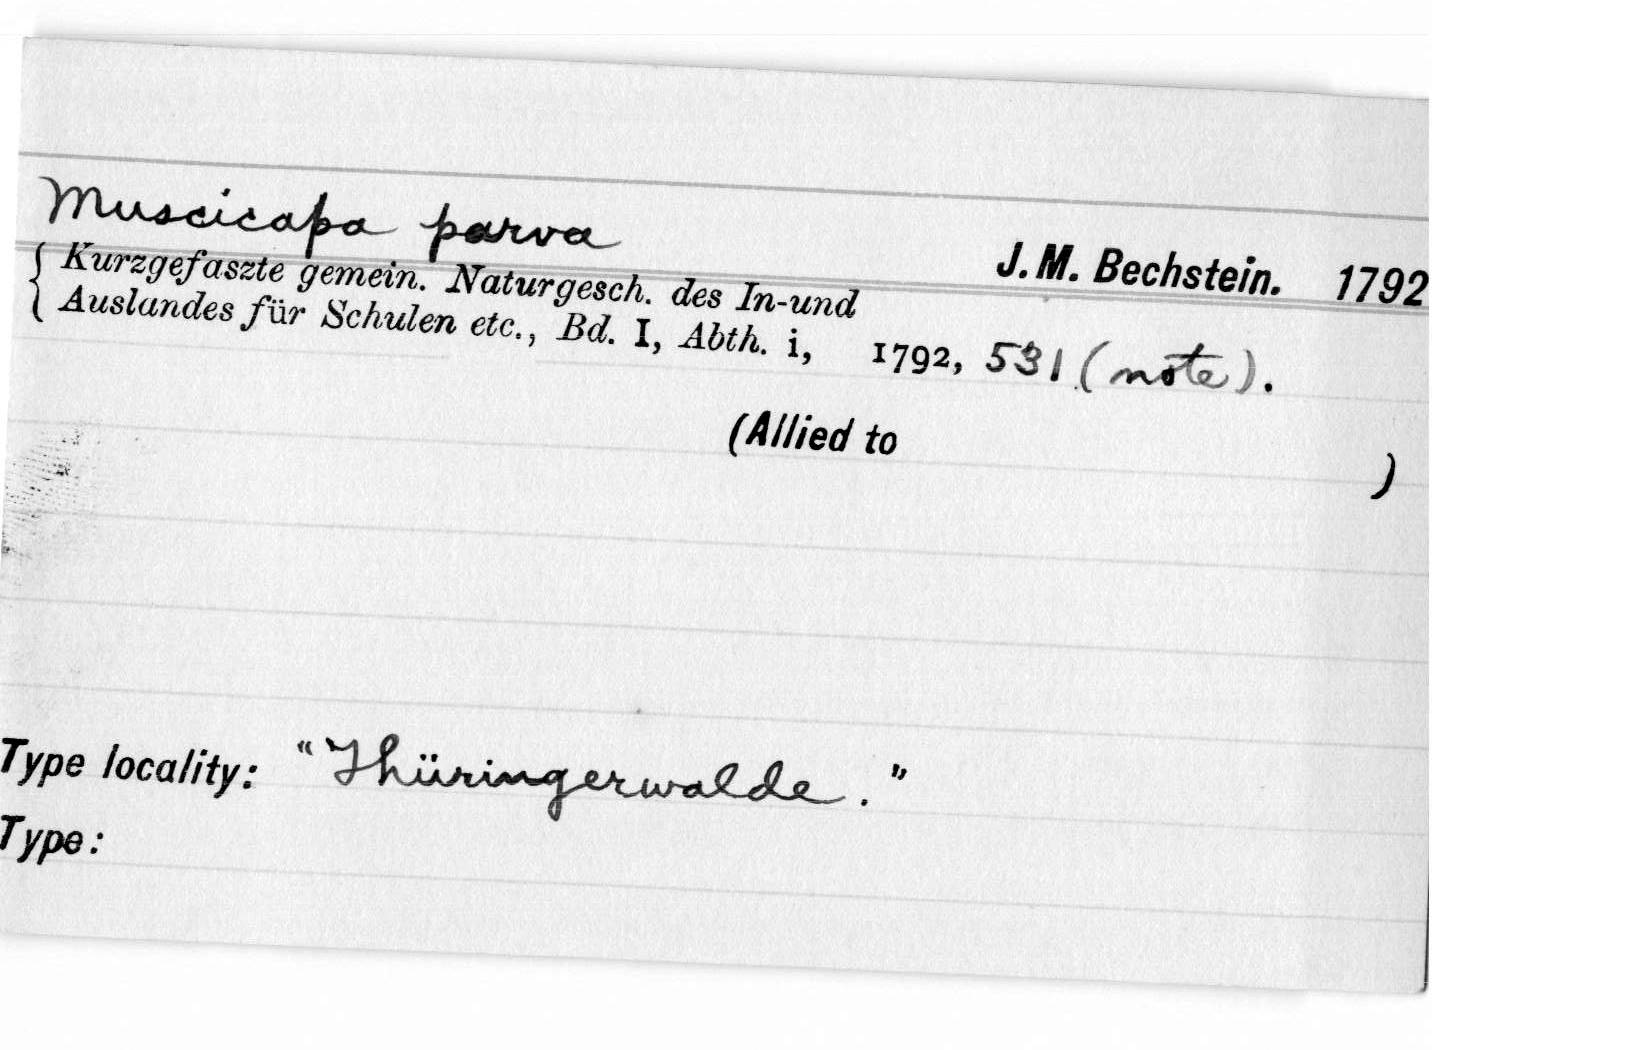 Muscicapa parva
J. M. Bechstein. 1792
{ Kurzgefaszte gemein. Naturgesch. des In-und
Auslandes für Schulen etc., Bd. I, Abth. i, 1792, 531 (note).
(Allied to )
Type locality: "Thüringerwalde."
Type: